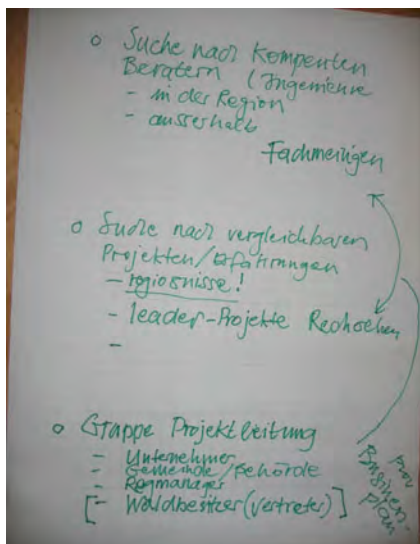 o Suche nach Kompenten
Beratern (Ingenieure
- in der Region
- ausserhalb
Fachmeinigen
o Suche nach vergleichbaren
Projekten/Erfahrungen
- regiosuisse!
- leader-Projekte
-
o Gruppe Projektleitung
- Unternehmer
- Gemeinde/Behörde
- Regmanager
[- Waldbesitzer (Vertreter)]
Businessplan